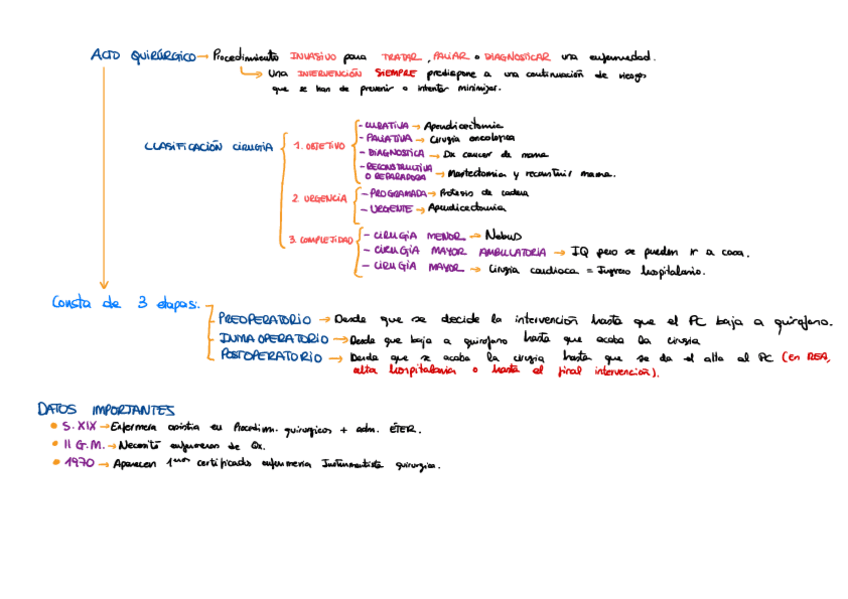 ACTO QUIRÚRGICO → Procedimiento INVASIVO para TRATAR, PALIAR o DIAGNOSTICAR una enfermedad.
→ Una INTERVENCIÓN SIEMPRE predispone a una continuación de riesgos
que se han de prevenir o intentar minimizar.
CLASIFICACIÓN CIRUGÍA
1. OBJETIVO
- CURATIVA → Apendicectomia
- PALIATIVA → Cirugia oncologica
- DIAGNOSTICA → Dx cancer de mama
- RECONSTRUCTIVA
O REPARADORA → Mastectomia y reconstruir mama.
2. URGENCIA
- PROGRAMADA → Protesis de cadera
- URGENTE → Apendicectomia
3. COMPLEJIDAD
- CIRUGÍA MENOR → Nebus
- CIRUGÍA MAYOR AMBULATORIA → IQ pero se pueden ir a casa.
- CIRUGÍA MAYOR → Cirugia cardiaca = Ingreso hospitalario.
Consta de 3 etapas:
PREOPERATORIO → Desde que se decide la intervención hasta que el PC baja a quirofano.
INTRAOPERATORIO → Desde que baja a quirofano hasta que acaba la cirugia
POSTOPERATORIO → Desde que se acaba la cirugia hasta que se da el alta al PC (en REA,
alta hospitalaria o hasta el final intervención).
DATOS IMPORTANTES
• S. XIX → Enfermera asistia en Procedim. quirurgicos + adm. ÉTER.
• II G.M. → Necesitó enfermeras de Qx.
• 1970 → Aparecen 1eros certificados enfermeria Instrumentista quirurgica.